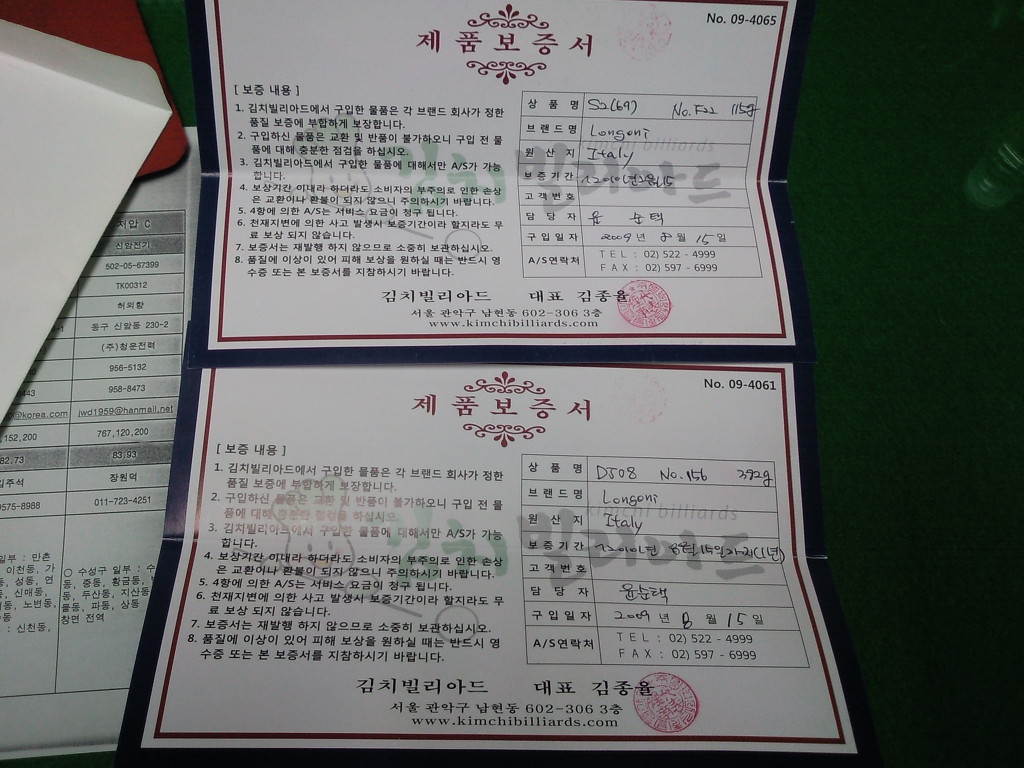 No. 09-4065
제품보증서
[ 보증 내용 ]
1. 김치빌리아드에서 구입한 물품은 각 브랜드 회사가 정한
품질 보증에 부합하게 보장합니다.
2. 구입하신 물품은 교환 및 반품이 불가하오니 구입 전 물
품에 대해 충분한 점검을 하십시오.
3. 김치빌리아드에서 구입한 물품에 대해서만 A/S가 가능
합니다.
4. 보상기간 이내라 하더라도 소비자의 부주의로 인한 손상
은 교환이나 환불이 되지 않으니 주의하시기 바랍니다.
5. 4항에 의한 A/S는 서비스 요금이 청구 됩니다.
6. 천재지변에 의한 사고 발생시 보증기간이라 할지라도 무
료 보상 되지 않습니다.
7. 보증서는 재발행 하지 않으므로 소중히 보관하십시오.
8. 품질에 이상이 있어 피해 보상을 원하실 때는 반드시 영
수증 또는 본 보증서를 지참하시기 바랍니다.
상 품 명 S2(69) No. F22 115g
브랜드명 Longoni
원 산 지 Italy
보증기간
고객번호
담 당 자 윤 순택
구입일자 2009 년 8 월 15 일
A/S연락처 TEL : 02) 522 - 4999
FAX : 02) 597 - 6999
kimchi billiards
김치빌리아드
김치빌리아드 대표 김종율
서울 관악구 남현동 602-306 3층
www.kimchibilliards.com
No. 09-4061
제품보증서
[ 보증 내용 ]
1. 김치빌리아드에서 구입한 물품은 각 브랜드 회사가 정한
품질 보증에 부합하게 보장합니다.
2. 구입하신 물품은 교환 및 반품이 불가하오니 구입 전 물
품에 대해 충분한 점검을 하십시오.
3. 김치빌리아드에서 구입한 물품에 대해서만 A/S가 가능
합니다.
4. 보상기간 이내라 하더라도 소비자의 부주의로 인한 손상
은 교환이나 환불이 되지 않으니 주의하시기 바랍니다.
5. 4항에 의한 A/S는 서비스 요금이 청구 됩니다.
6. 천재지변에 의한 사고 발생시 보증기간이라 할지라도 무
료 보상 되지 않습니다.
7. 보증서는 재발행 하지 않으므로 소중히 보관하십시오.
8. 품질에 이상이 있어 피해 보상을 원하실 때는 반드시 영
수증 또는 본 보증서를 지참하시기 바랍니다.
상 품 명 DJ08 No. 156 392g
브랜드명 Longoni
원 산 지 Italy
보증기간 8월 15일까지(1년)
고객번호
담 당 자 윤순택
구입일자 2009 년 8 월 15 일
A/S연락처 TEL : 02) 522 - 4999
FAX : 02) 597 - 6999
kimchi billiards
김치빌리아드
김치빌리아드 대표 김종율
서울 관악구 남현동 602-306 3층
www.kimchibilliards.com
저압 C
신암전기
502-05-67399
TK00312
허외향
동구 신암동 230-2
(주)청운전력
956-5132
443 958-8473
@korea.com jwd1959@hanmail.net
,152,200 767,120,200
82.73 83.93
김주석 장원덕
9575-8988 011-723-4251
일부 : 만촌
이천동, 가
동, 성동, 연
동, 신매동,
동, 노변동,
동
: 신천동,
○ 수성구 일부 : 수
동, 중동, 황금동,
동, 두산동, 지산동
물동, 파동, 상동
창면 전역